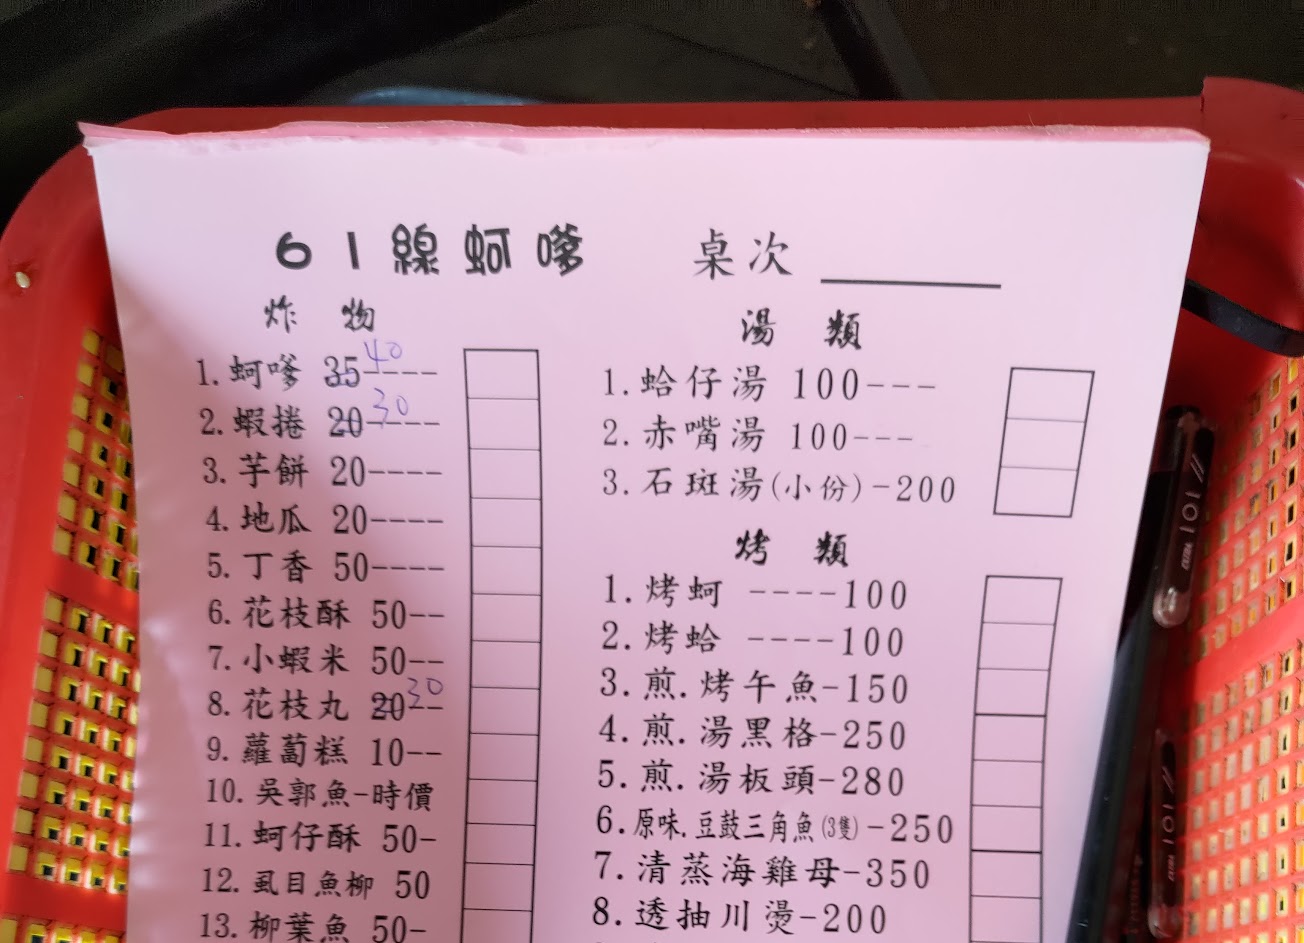 61線蚵嗲 桌次
炸物
1.蚵嗲 35---- 40
2.蝦捲 20---- 30
3.芋餅 20----
4.地瓜 20----
5.丁香 50----
6.花枝酥 50--
7.小蝦米 50--
8.花枝丸 20-- 30
9.蘿蔔糕 10--
10.吳郭魚-時價
11.蚵仔酥 50-
12.虱目魚柳 50
13.柳葉魚 50-
湯類
1.蛤仔湯 100---
2.赤嘴湯 100---
3.石斑湯(小份)-200
烤類
1.烤蚵 ----100
2.烤蛤 ----100
3.煎.烤午魚-150
4.煎.湯黑格-250
5.煎.湯板頭-280
6.原味.豆鼓三角魚(3隻)-250
7.清蒸海雞母-350
8.透抽川燙-200
101
101